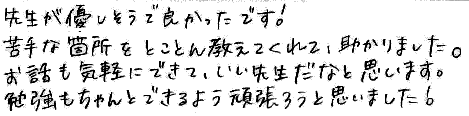 先生が優しそうで良かったです!
苦手な箇所をとことん教えてくれて、助かりました。
お話も気軽にできて、いい先生だなと思います。
勉強もちゃんとできるよう頑張ろうと思いました!